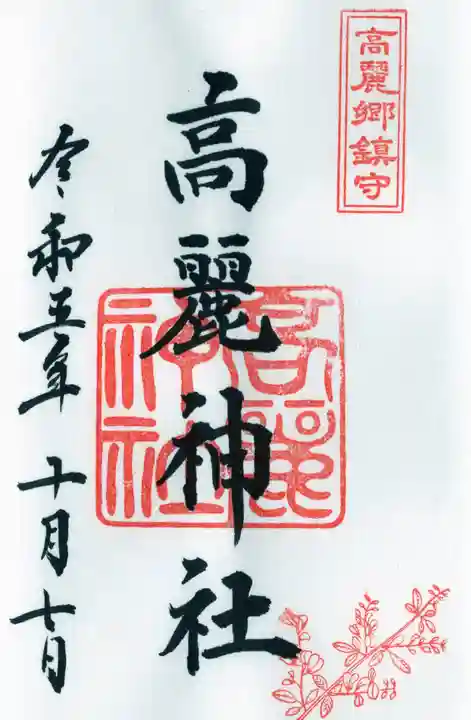 高麗郷鎮守
高麗神社
令和五年 十月七日
高麗
神社